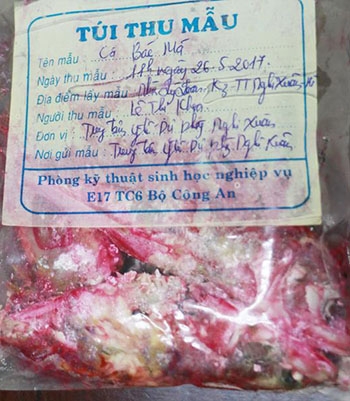 TÚI THU MẪU
Tên mẫu : Cá Bac Má
Ngày thu mẫu : 11h ngày 26.5.2017.
Địa điểm lấy mẫu K2 - TT Nghi Xuân
Người thu mẫu : Lê Thị
Đơn vị : Trung tâm y tế Dự phòng Nghi Xuân
Nơi gửi mẫu : Trung tâm y tế Dự phòng Nghi Xuân
Phòng kỹ thuật sinh học nghiệp vụ
E17 TC6 Bộ Công An